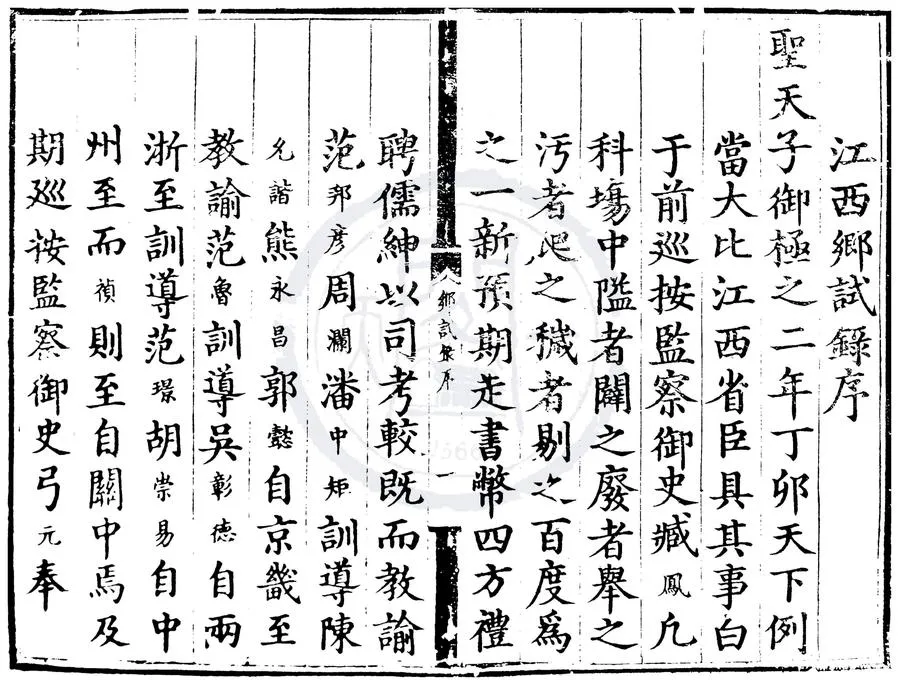 江西鄉試錄序
聖天子御極之二年丁卯天下例
當大比江西省臣具其事白
于前巡按監察御史臧鳳凡
科場中隘者闢之廢者舉之
污者爬之穢者剔之百度爲
之一新預期走書幣四方禮
鄉試錄序 一
聘儒紳以司考較既而教諭
范邦彦周瀾潘中矩訓導陳
允諧熊永昌郭懿自京畿至
教諭范魯訓導吳彰德自兩
淅至訓導范璟胡崇易自中
州至而禎則至自關中焉及
期巡按監察御史弓元奉